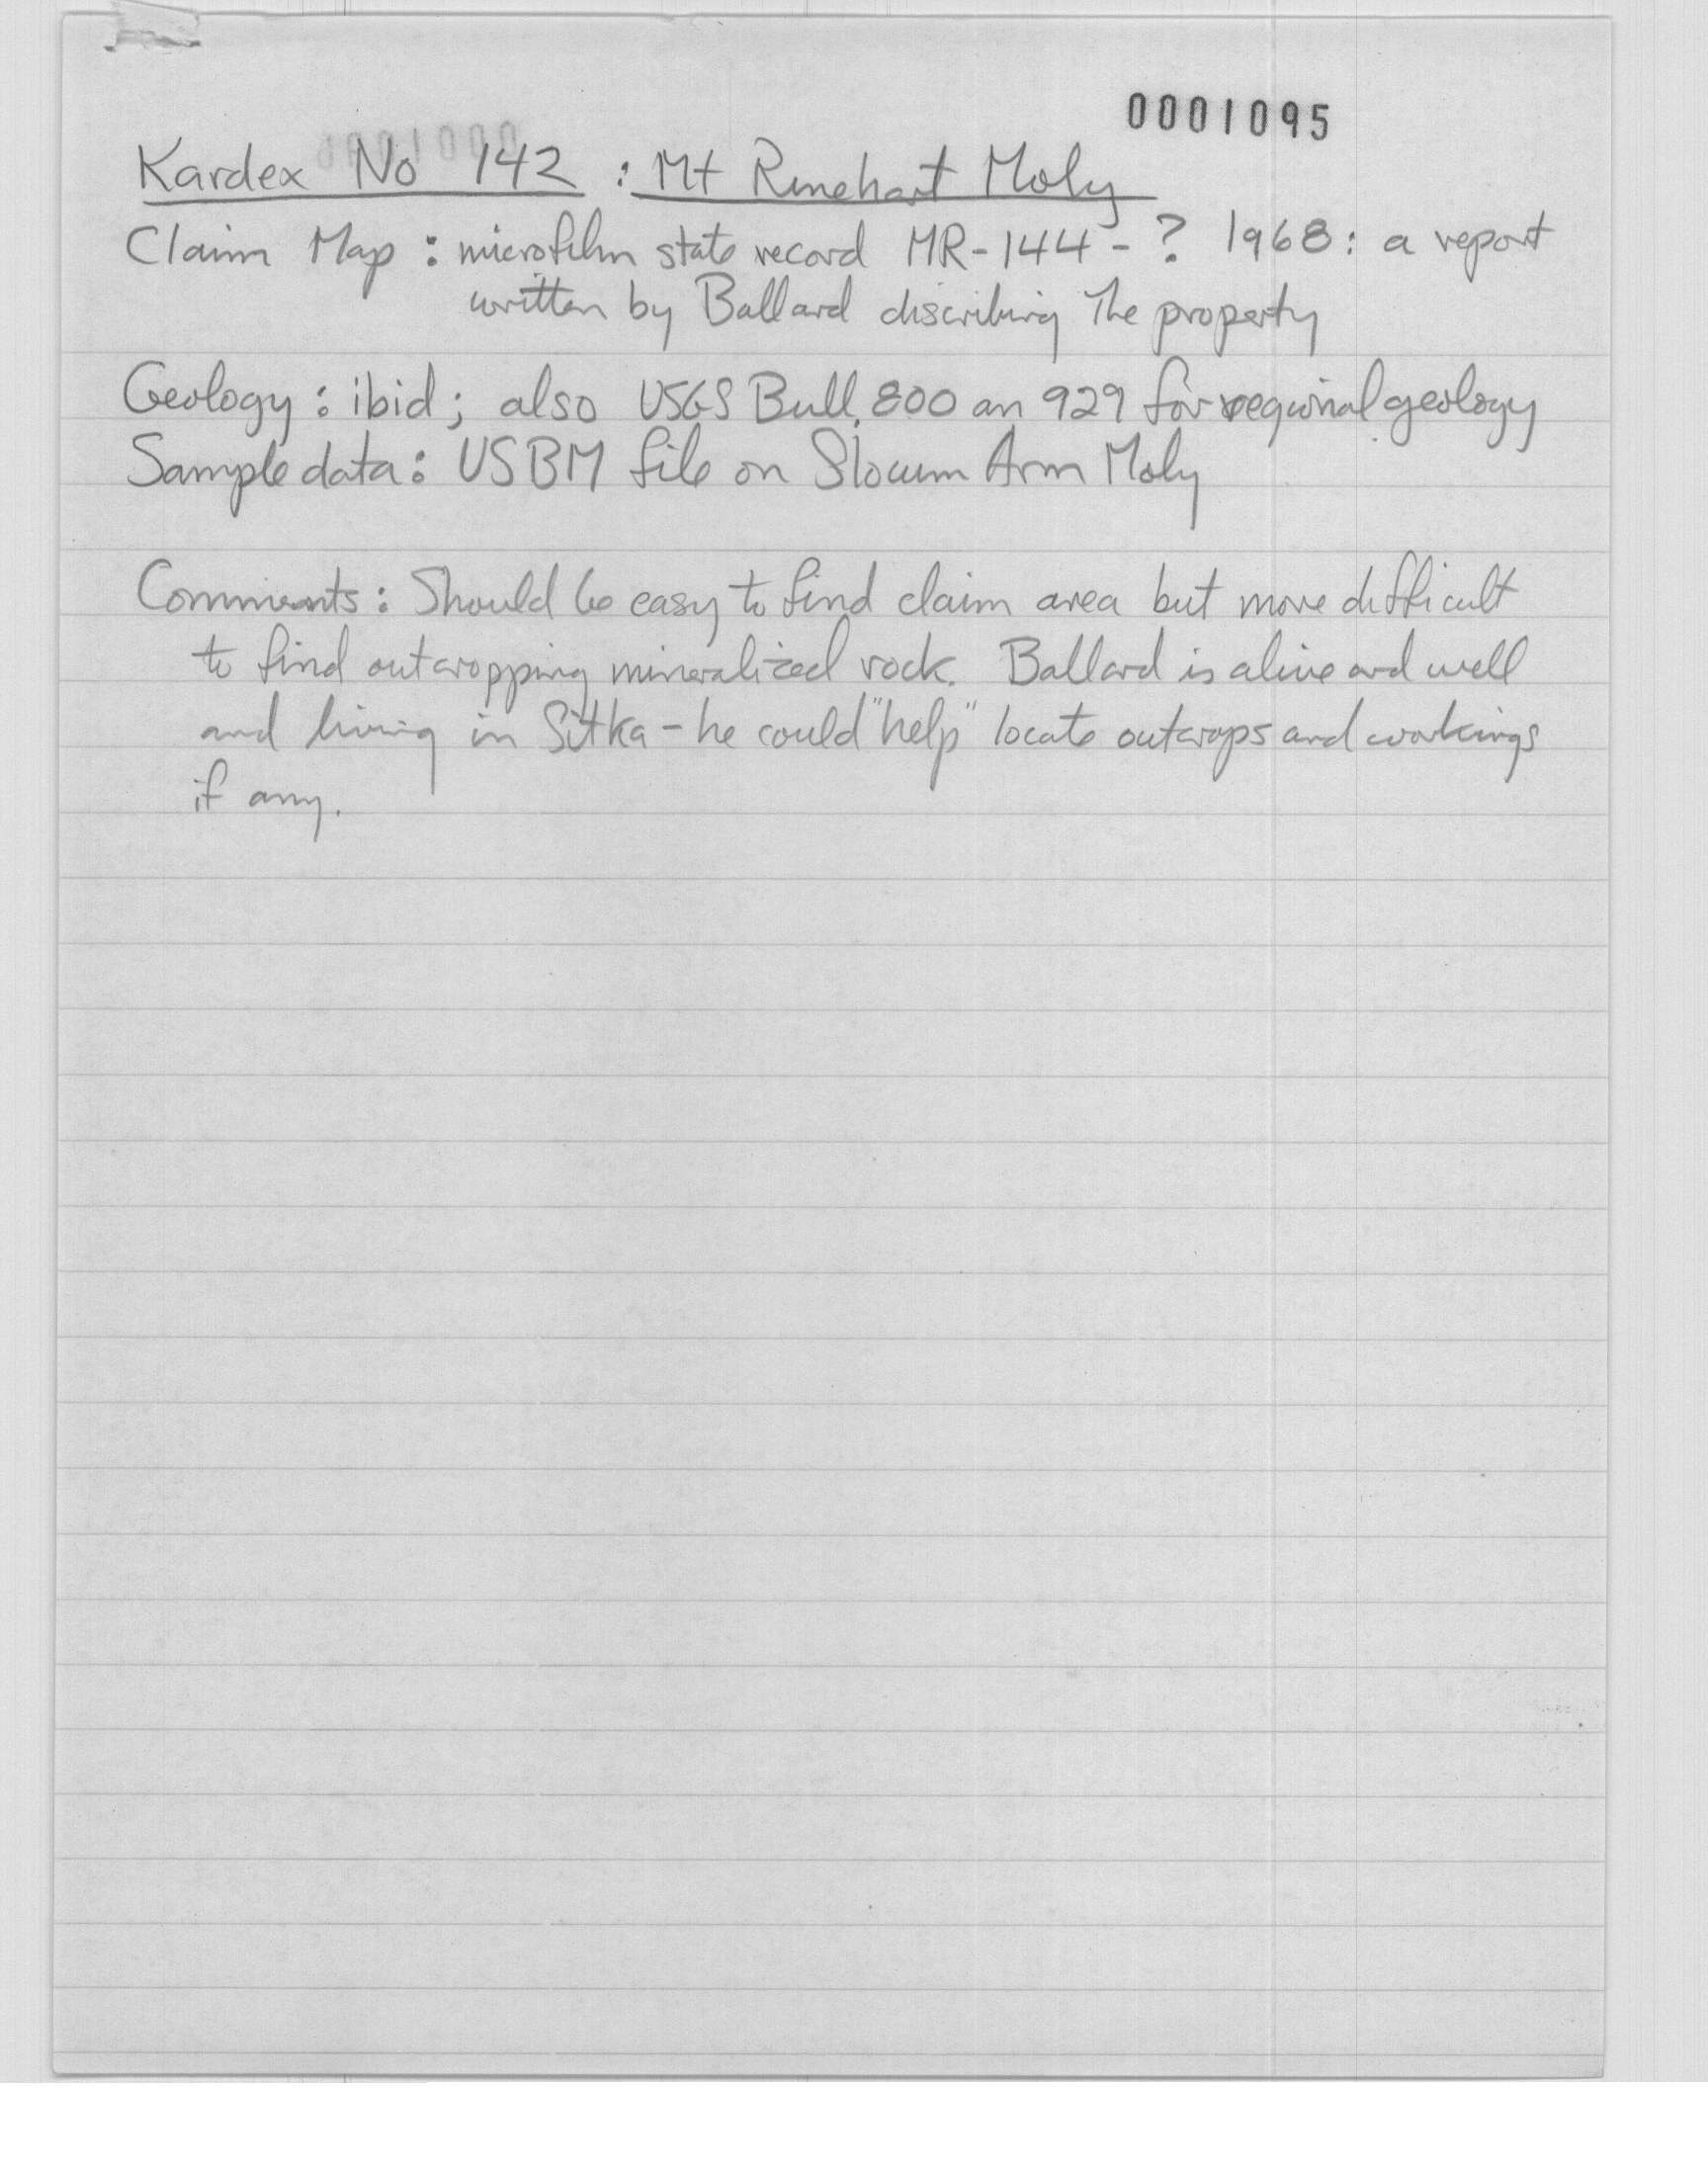 0001095
Kardex No 142 : Mt Rinehart Moly
Claim Map : microfilm state record MR-144-? 1968: a report
written by Ballard discribing The property
Geology : ibid; also USGS Bull. 800 an 929 for regional geology
Sample data: USBM file on Slocum Arm Moly
Comments: Should be easy to find claim area but more difficult
to find outcropping mineralized rock. Ballard is alive and well
and living in Sitka - he could "help" locate outcrops and workings
if any.